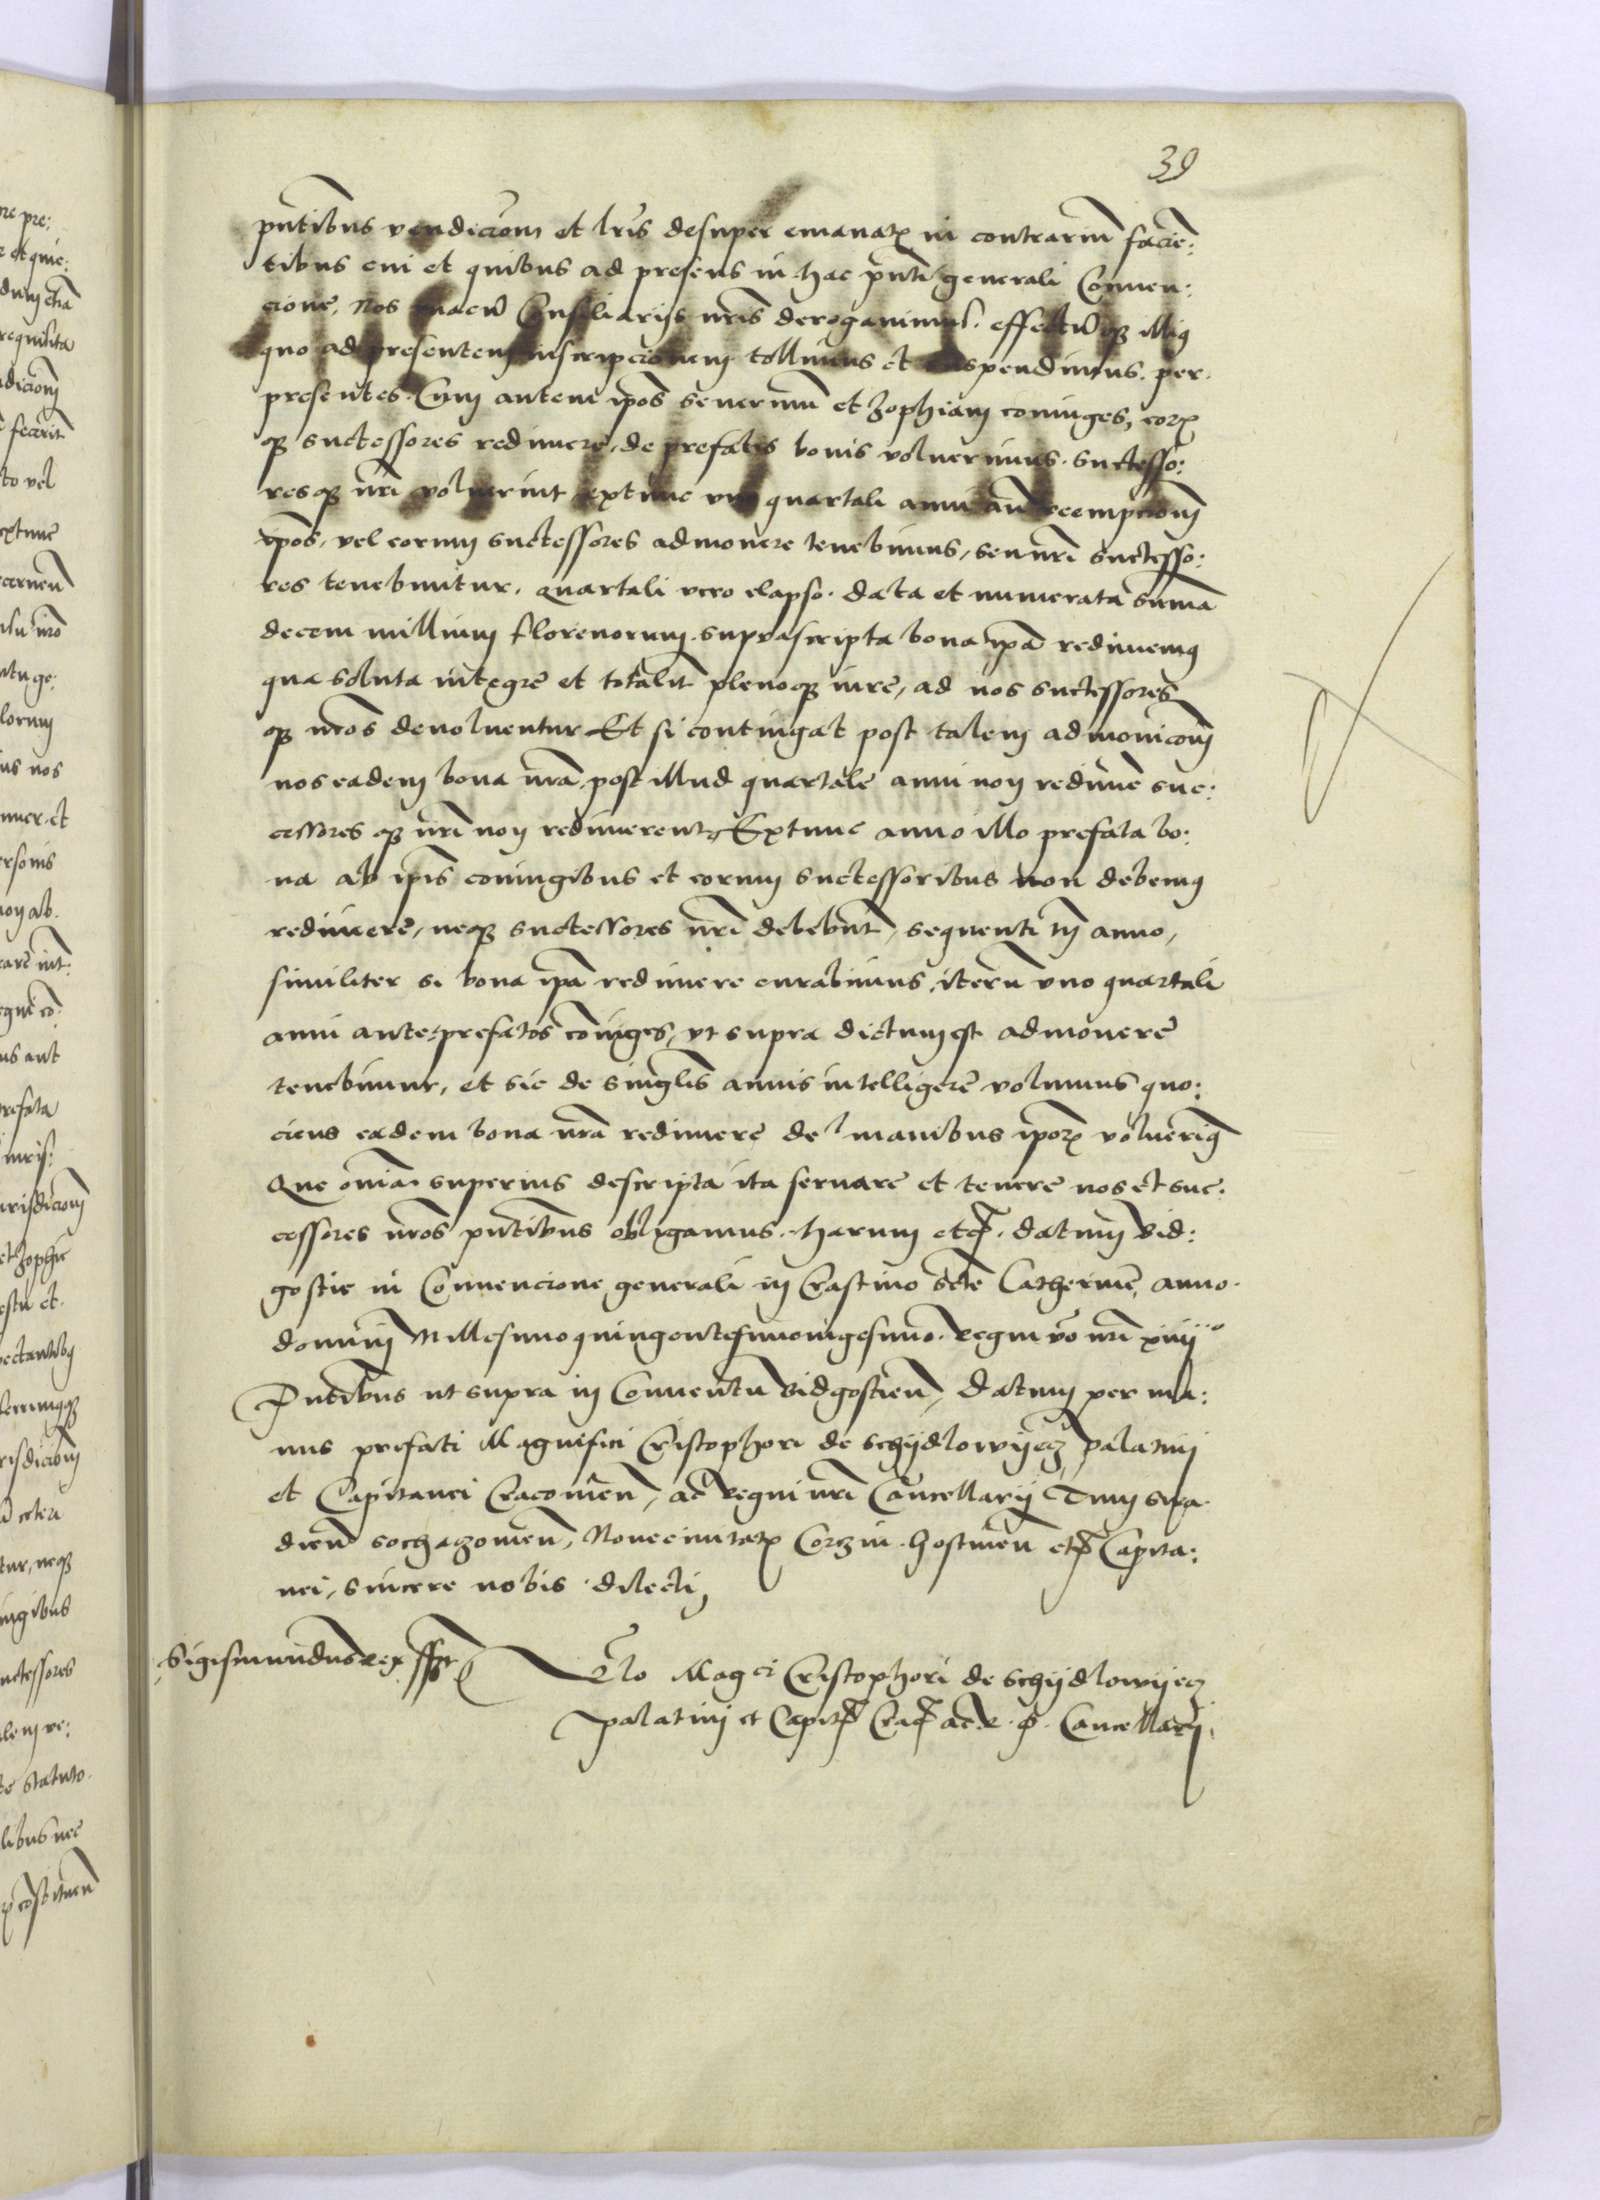 39
pñtibus vendiciõni et lr̃is desuper emanatꝝ in contrariũ faciẽ:
tibus cui et quibus ad presens in hac pñti generali Conuen:
cione, Nos unacũ Consiliarijs nr̃is derogauimus. effectũqꝫ illiꝰ
quo ad presentem inscripcionem tollimus et suspendimus. per
presentes. Cum autem ip̃os Seuerinũ et Zophiam coniuges, eorꝝ
qꝫ successores redimere, de prefatis bonis voluerimus. successo:
resqꝫ nr̃i voluerint extunc vno quartali anni an̄ reempcionẽ
ip̃os, vel eorum successores admonere tenebimus, seu nr̃i successo:
res tenebuntur. quartali vero elapso. data et numerata sum̃a
decem millium florenorum suprascripta bona ip̃a redimemꝰ
qua soluta integre et totalit̃ plenoqꝫ iure, ad nos successores
qꝫ nr̃os deuoluentur Et si contingat post talem admonicõni
nos eadem bona nr̃a post illud quartale anni non redimẽ suc:
cessores qꝫ nr̃i non redimerent, Extunc anno illo prefata bo:
na ab ip̃is coniugibus et eorum successoribus non debemꝰ
redimere, neqꝫ successores nr̃i debebũt, sequenti tñ anno,
similiter si bona ip̃a redimere curabimus, iterũ vno quartali
anni ante prefatos cõiuges, vt supra dictum est admonere
tenebimur, et sic de sing̃lis annis intelligere volumus quo:
ciens eadem bona nr̃a redimere de manibus ip̃orꝝ voluerimꝰ
Que om̃ia superius descripta ita seruare et tenere nos et suc:
cessores nr̃os pñtibus obligamus. harum etc̃. datum Bid:
gostie in Conuencione generali in Crastino sc̃te Catherine, anno
domini Millesimoquingentesimovigesimo. Regni vo nr̃i xiiijᵒ
Pñtibus ut supra in Conuentu Bidgostieñ, Datum per ma:
nus prefati Magnifici Cristophori de Schydlowyecz palatini
et Capitanei Cracouieñ, ac Regni nr̃i Cancellarij Tum Sira
dieñ Sochazouieñ, Nouecivitatꝝ Corczin. Gostineñ etc̃ Capita:
nei, sincere nobis dilecti,
Sigismundus Rex sst
Rel̃o Magᶜⁱ Cristophori de Schydlowyecz
palatini et Capit̃ Crac̃ ac R. P. Cancellarij